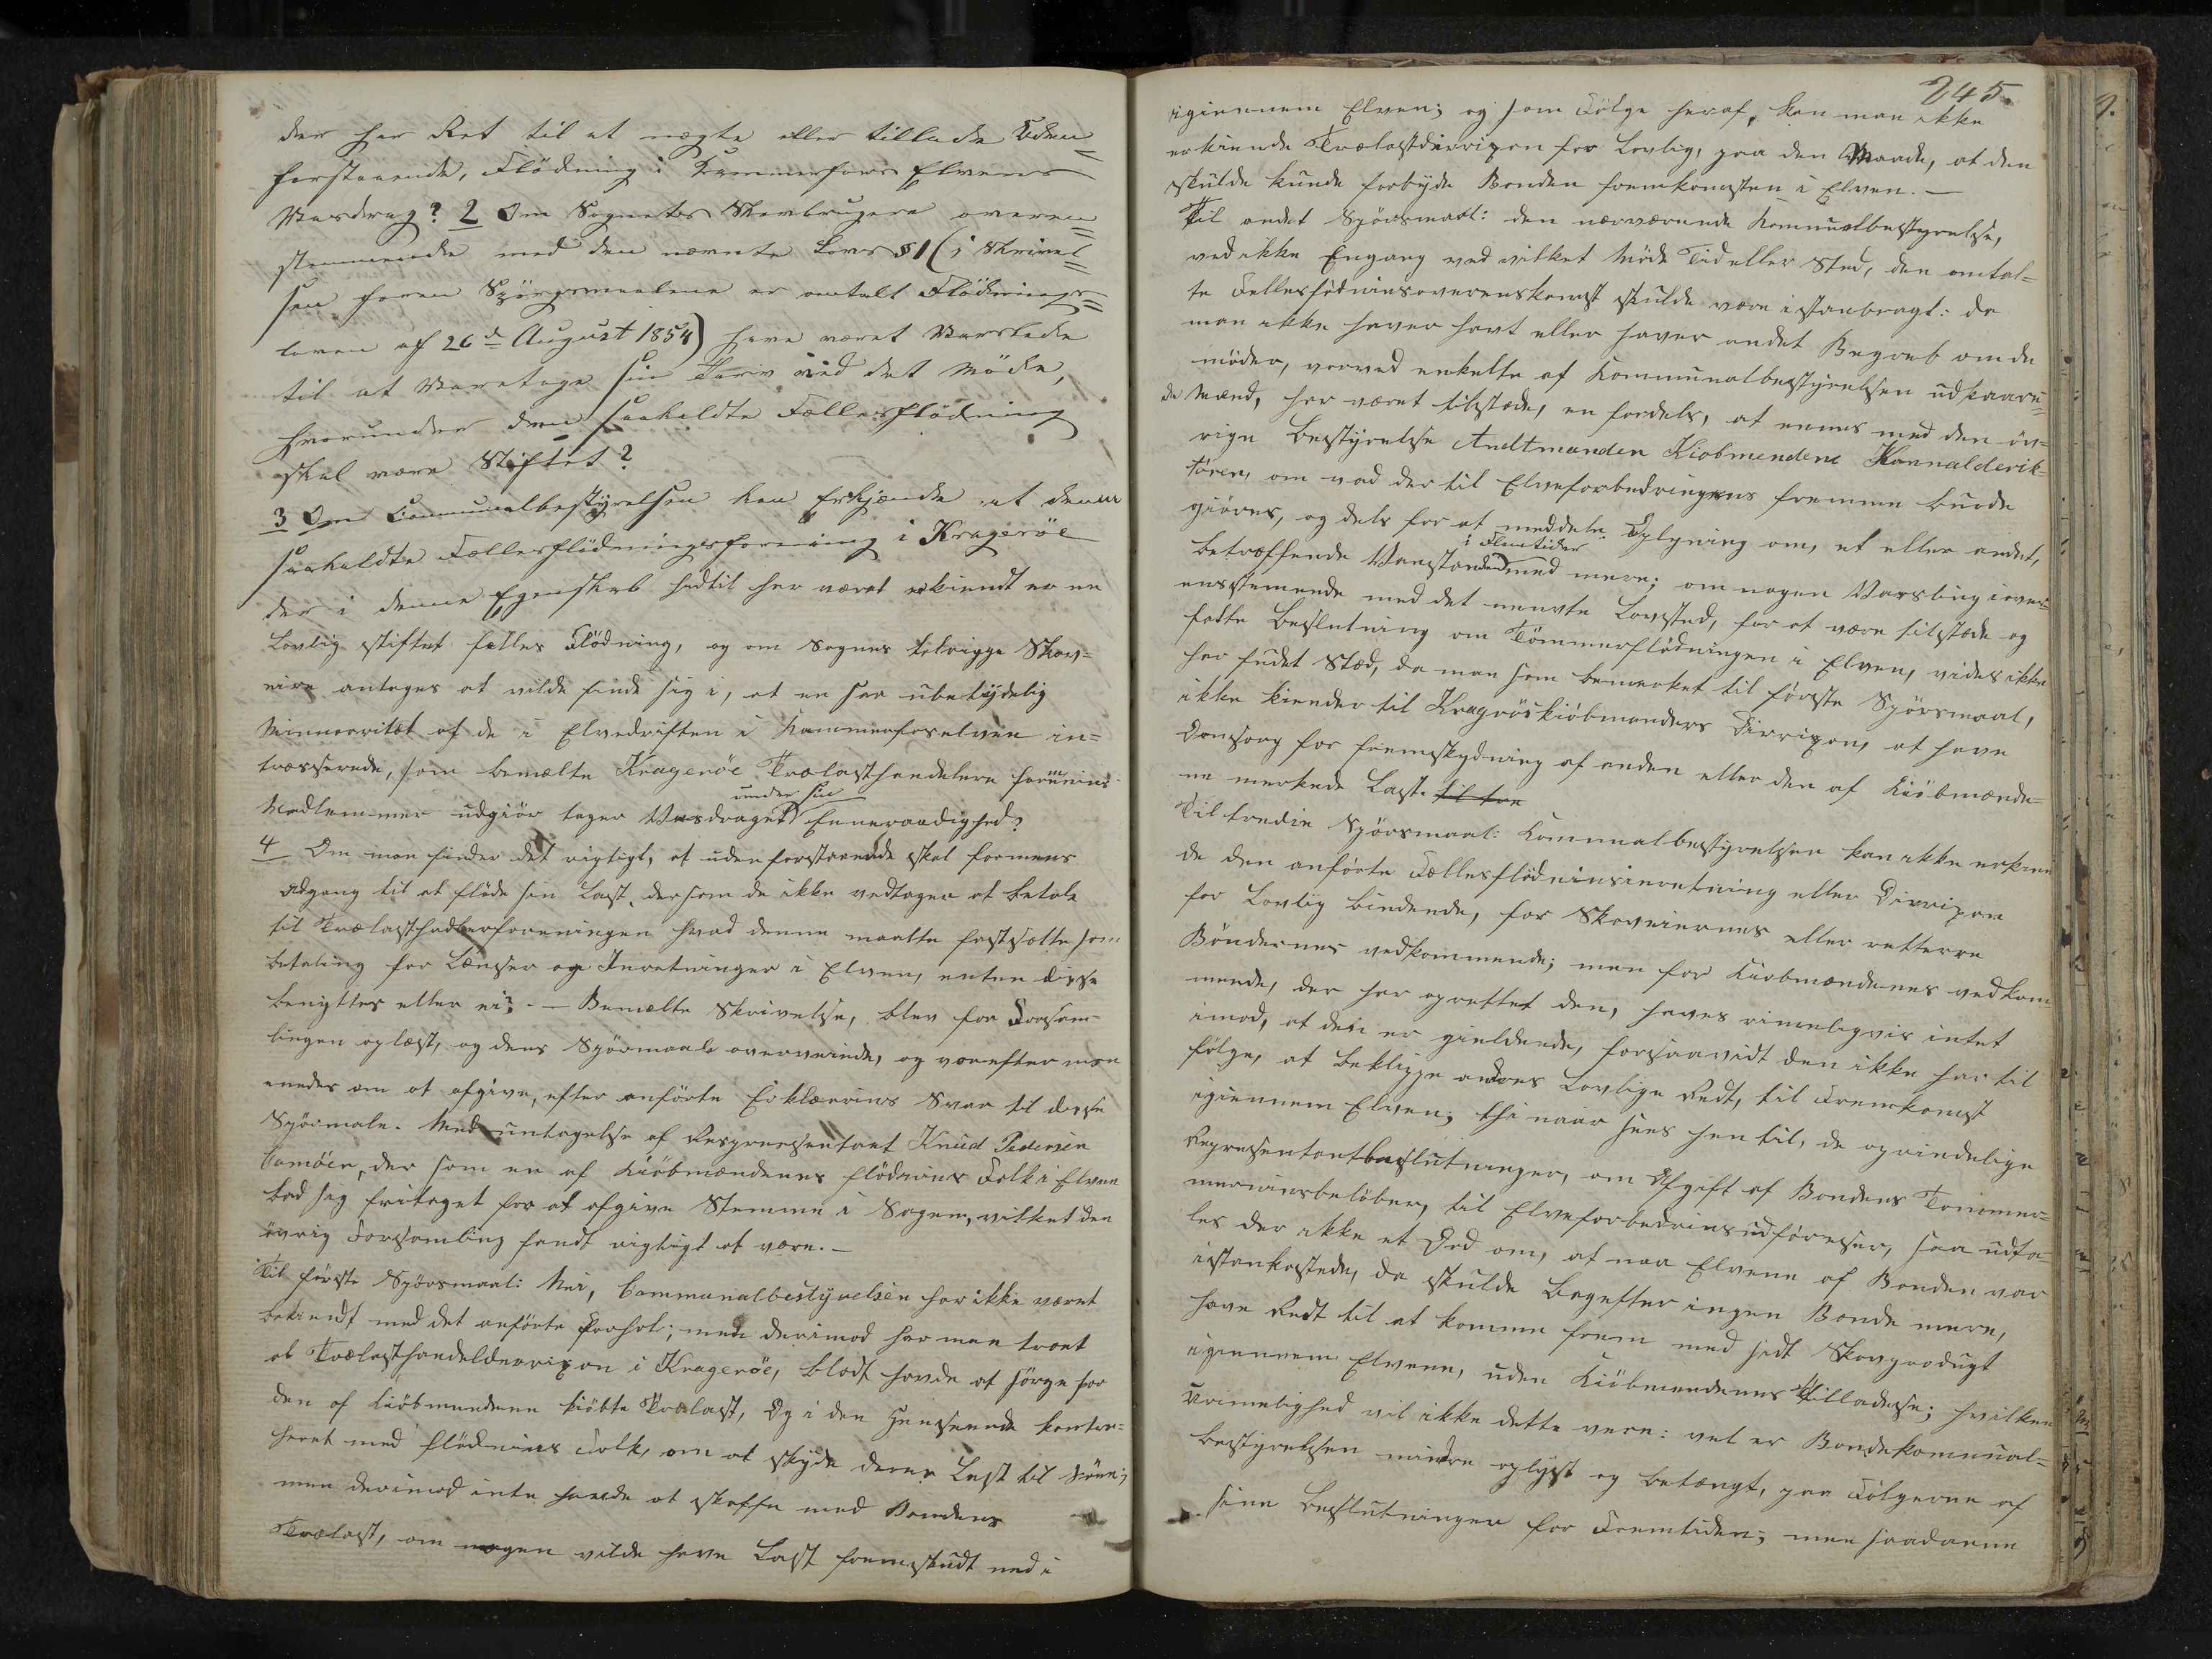 der har Ret til at nægte eller tillade Uden=
forstaaende, Flödning i Kammerfoss Elvens
Vasdrag? 2 Om Sognets Skovbrugere overen=
stemmende med den nævnte Lovs § 1 (i Skrivel=
sen foran Spörgsmaalene er omtalt Flödnings=
loven af 26de August 1854) have været Varslede
til at Varetage sin Tarv ved det Möde,
hvorunder den saakaldte Fællesflödning
skal være Stiftet?
3 Om Communalbestyrelsen kan Erkjænde at denne
saakaldte Fællesflödningsforening i Kragerøe
der i denne Egenskab hidtil har været erkiendt er en
Lovlig stiftet felles Flödning, og om Sognes Skov=
eire antages at vilde finde sig i, at en saa ubetydelig
Minnoritet af de i Elvedriften i Kammerfoselven in=
træsserede, som bemælte Kragerøe Trælasthandelere forenins
Medlemmer udgiör tager Vasdraget under sin Enneraadighed?
4 Om man finder det rigtigt, at udenforstaaende skal formenes
Adgang til at flöde sin Last, dersom de ikke vedtager at betale
til Trælasthandlerforeningen hvad denne maatte fastsætte som
betaling for Lænser og Inretninger i Elven, enten disse
benyttes eller ei? — Bemælte Skrivelse, blev for Forsam-
lingen oplæst, og dens Spörsmaale overveiede, og vorefter man
enedes om at afgive, efter anförte Erklærins Svar til disse
Spörmale. Med untagelse af Representant Knud Pedersen
der som en af Kiöbmændenes flödnins Folk i Elven
bad sig fritaget for at afgive Stemme i Sagen, vilket den
övrig Forsamling fandt rigtigt at være.—
Til förste Spörsmaal: Nei, Communalbestyrelsen har ikke været
bekiendt med det anförte Forhol; men derimod har man troet
at Trælasthandeldirrixon i Kragerøe, blodt havde at sörge for
den af Kiöbmendene kiöbte Trælast, Og i den Henseende kontra=
heret med flödnins Folk, om at skyde deres Last til Söen;
men derimod inte havde at skaffe med Bondens
Trælast, om nogen vilde have Last fremskudt ned i
245.
igiennem Elven; og som Fölge heraf, kan man ikke
erkiende Trælastdirrixon for Lovlig, paa den Maade, at den
skulde kunde forbyde Bonden fremkomsten i Elven.—
Til andet Spörsmaal: den nærværende Komunalbestyrelse,
ved ikke Engang ved vilket Möde Tid eller Sted, den omtal=
te Fellesflödninsoverenskomst skulde være istanbragt: da
man ikke haver havt eller haver andet Begreb om de
möder, vorved enkelte af Kommunalbestyrelsen udkaare=
de Mænd, har været tilstæde, en fordels, at enes med den öv=
rige Bestyrelse Amtmanden Kiobmendene Kannaldirik=
tören, om vad der til Elveforbedringens fremme burde
giöres, og dels for at meddele Oplysning om, et eller andet,
betræffende Vanstanden i Flomtider med mere; om nogen Varsling iover=
ensstemende med det nævnte Lovsted, for at være tilstæde og
fatte Beslutning om Tömmerflödningen i Elven, vides ikke
har fudet Stæd, da man som bemerket til förste Spörsmaal,
ikke kiender til Kragröskiöbmanders Dirrixon, at have
Omsorg for fremskydning af anden eller den af Kiöbmænde=
ne merkede Last. til tre
Til tredie Spörsmaal: Kommunalbestyrelsen kan ikke erkien
de den anförte Fællesflödninsinretning eller Dirrixon
for Lovlig bindende, for Skoveiernes eller rettere
Böndernes vedkommende; men for Kiöbmændenes vedkom
mende, der har oprettet den, haves rimeligvis intet
imod, at den er gieldende, forsaavidt den ikke har til
fölge, at Beklippe andres Lovlige Redt, til Fremkomst
igiennem Elven; thi naar sees hen til, de oprindelige
Representantbeslutninger, om Afgift af Bondens Tömmer=
til Elveforbedrinsudförelser, saa udta=
les der ikke et Ord om, at naar Elvene af Bonden var
istankostede, da skulde bagefter ingen Bonde mere,
have Redt til at komme frem med sidt Skovprodugt
igiennem Elvene, uden Kiöbmendenes Tilladelse; hvilken
Urimelighed vil ikke dette vere: vel er Bondekomunal=
bestyrelsen mindre oplyst og betængt, paa Fölgerne af
sine Beslutninger for Fremtiden; men saadanne